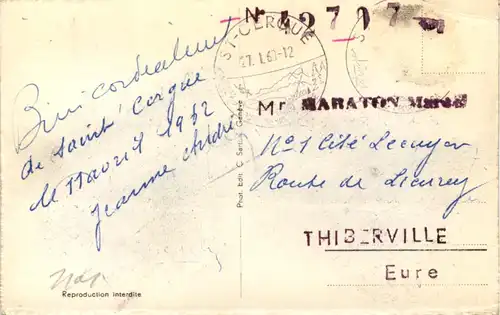 N° 42707
ST-CERGUE
27.1.60-12
Bien cordialement
de Saint Cergue
le 11 avril 1962
Jeanne André
Mr MARATON Marcel
N°1 Cité Lecuyer
Route de Lieurey
THIBERVILLE
Eure
Phot. Edit. Genève
Reproduction interdite